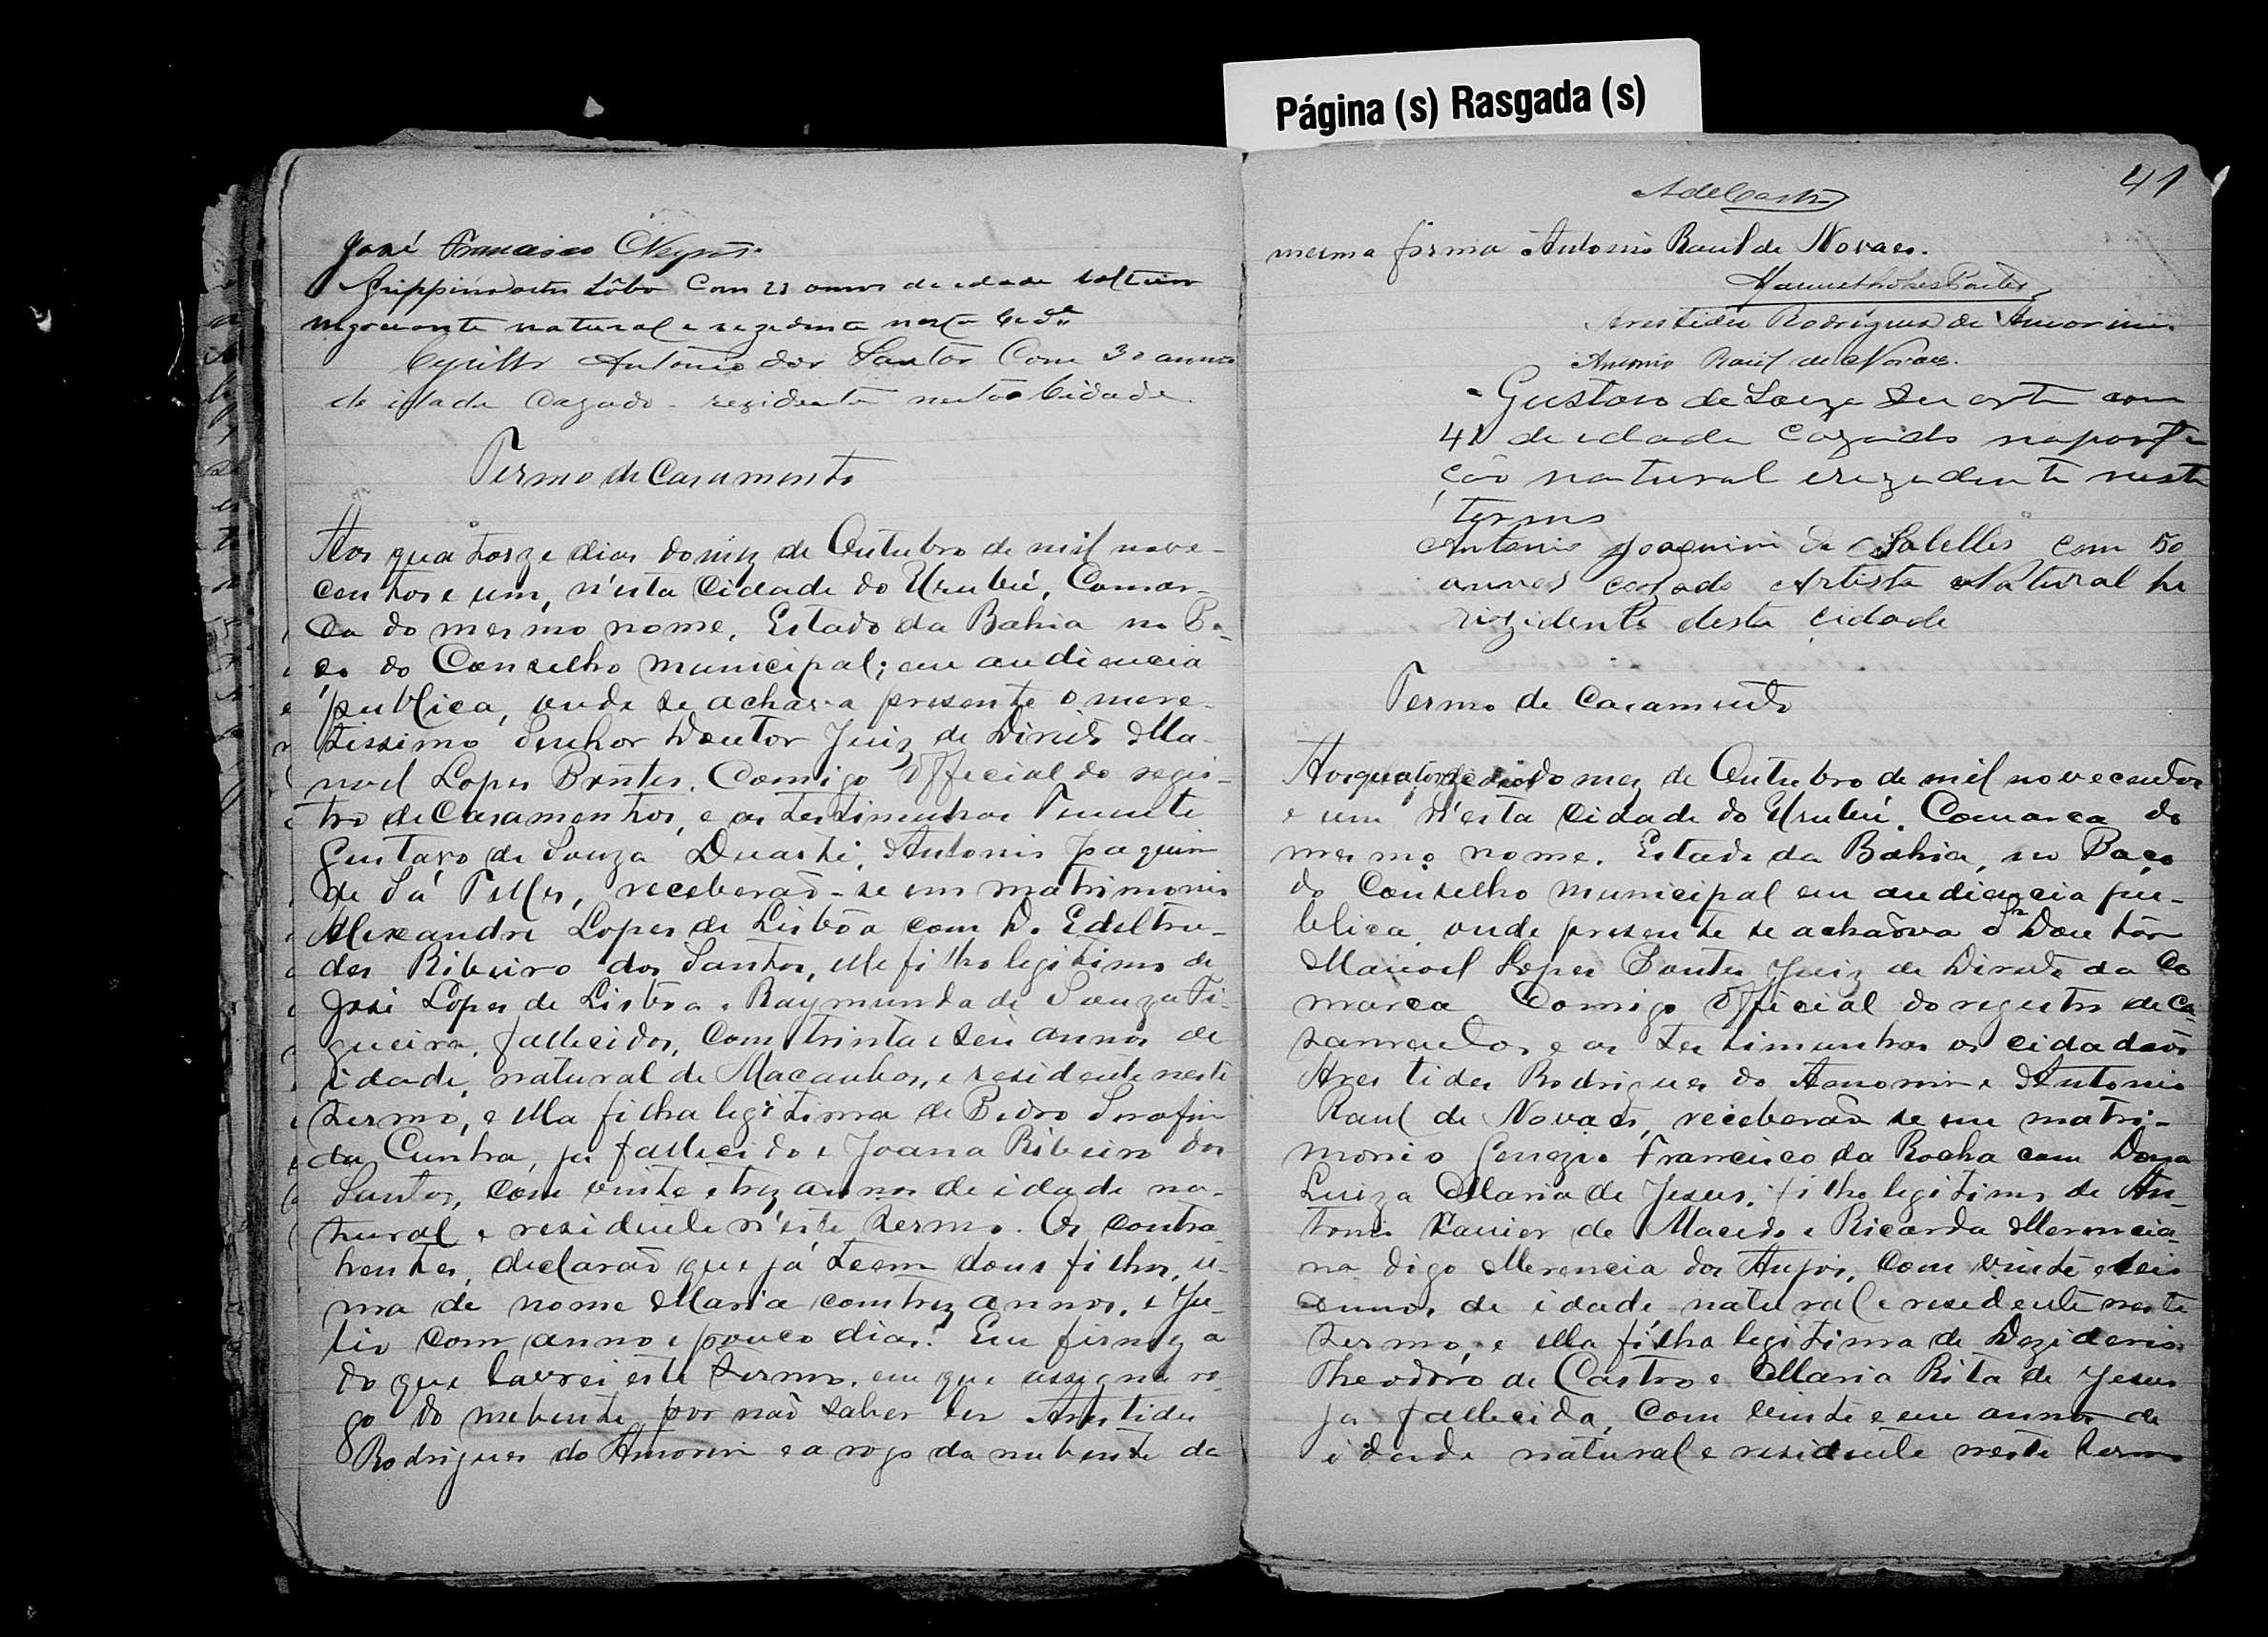 Página (s) Rasgada (s)
José Francisco
Lôbo Com 21 annos de idade solteiro
negociante natural e rezidente nesta Cidᵉ
Cyrillo Antonio dos Santos Com 30 annos
de idade Cazado - rezidente nesta Cidade
Termo de Casamento
Aos quatorze dias do mez de Outubro de mil nove-
centos e um, n'esta Cidade do Urubú, Comar-
ca do mesmo nome, Estado da Bahia no Pa-
ço do Conselho municipal; em audiencia
publica, onde se achava presente o mere-
tissimo Senhor Doutor Juiz de Direito Ma-
noel Lopes Pontes, Comigo Official do regis-
tro de Casamentos, e as testimunhas Tenente
Gustavo de Souza Duarte, Antonio Joaquim
de Sá Telles, receberaõ-se em matrimonio
Alexandre Lopes de Lisbôa com D. Edeltru-
des Ribeiro dos Santos, elle filho legitimo de
José Lopes de Lisbôa e Raymunda de Souza Fi-
gueira, fallecidos, com trinta e seis annos de
idade, natural de Macaubas, e residente neste
termo, e ella filha legitima de Pedro Serafim
da Cunha, já fallecido e Joana Ribeiro dos
Santos, com vinte e trez annos de idade na-
tural e residente n'este termo. Os contra-
hentes, declaraõ que já teem dous filhos, u-
ma de nome Maria com trez annos, e Ju-
lio com anno e pouco dias. Em firmeza
do que lavrei este termo, em que assigna ro-
go do nubente por naõ saber ler Aristides
Rodrigues do Amorim e a rogo da nubente da
41
mesma fórma Antonio Raul de Novaes.
Manuel Lopes Pontes
Aristides Rodrigues de Amorim.
Antonio Raul de Novaes.
Gustavo de Souza Duarte com
41 de idade cazado
natural e rezidente neste
termo
Antonio Joaquim de Satelles com 50
annos cazado Artista Natural he
rizidente desta cidade
Termo de Casamento
Aos quatorze dias do mez de Outubro de mil novecentos
e um n'esta Cidade do Urubú, Comarca do
mesmo nome, Estado da Bahia, no Paço
do Conselho municipal em audiencia pu-
blica, onde presente se achava o Sr Doutor
Manoel Lopes Pontes Juiz de Direito da Co
marca Comigo Official do registro de Ca-
samentos e as testimunhas os cidadaõs
Aristides Rodrigues do Amorim e Antonio
Raul de Novaes, receberaõ se em matri-
monio Genezio Francisco da Rocha com Dona
Luiza Maria de Jesus, filho legitimo de An-
tonio Xavier de Macedo e Ricarda Merencia-
na digo Merencia dos Anjos, com vinte e seis
annos, de idade natural e residente neste
termo, e ella filha legitima de Deziderio
Theodoro de Castro e Maria Rita de Jesus
já fallecida, com vinte e um annos de
idade natural e residente neste termo